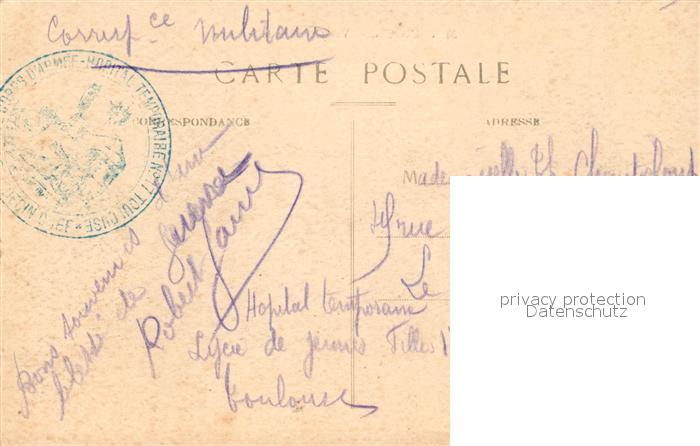 Corresp^ce Militaire
CARTE POSTALE
CORRESPONDANCE
ADRESSE
CORPS D'ARMÉE - HOPITAL TEMPORAIRE No 11 TOULOUSE
Bons souvenirs d'un
blessé de guerre
Robert
Mademoiselle
rue
Le
Hopital temporaire
Lycée de jeunes Filles
Toulouse
privacy protection
Datenschutz